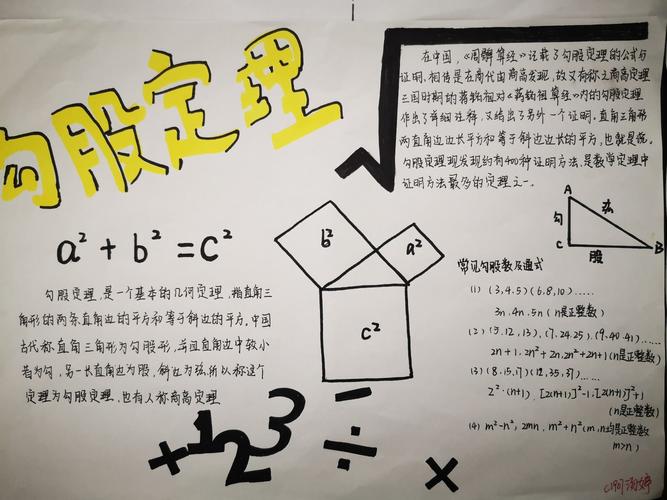 勾股定理
a² + b² = c²
勾股定理,是一个基本的几何定理,指直角三
角形的两条直角边的平方和等于斜边的平方,中国
古代称直角三角形为勾股形,并且直角边中较小
者为勾,另一长直角边为股,斜边为弦,所以称这个
定理为勾股定理,也有人称商高定理
b²
a²
c²
+123 - ÷ ×
在中国,《周髀算经》记载了勾股定理的公式与
证明,相传是在商代由商高发现,故又有称之商高定理
三国时期的蒋铭祖对《蒋铭祖算经》内的勾股定理
作出了详细注释,又给出了另外一个证明,直角三角形
两直角边边长平方和等于斜边边长的平方,也就是说,
勾股定理现发现约有400种证明方法,是数学定理中
证明方法最多的定理之一。
A
勾
弦
C
股
B
常见勾股数及通式
(1) (3,4,5) (6,8,10) ......
3n,4n,5n (n是正整数)
(2) (5,12,13), (7,24,25), (9,40,41) ......
2n+1, 2n²+2n, 2n²+2n+1 (n是正整数)
(3) (8,15,17) (12,35,37) ......
2²·(n+1), [2(n+1)]²-1, [2(n+1)]²+1
(n是正整数)
(4) m²-n², 2mn, m²+n² (m,n均是正整数
m>n)